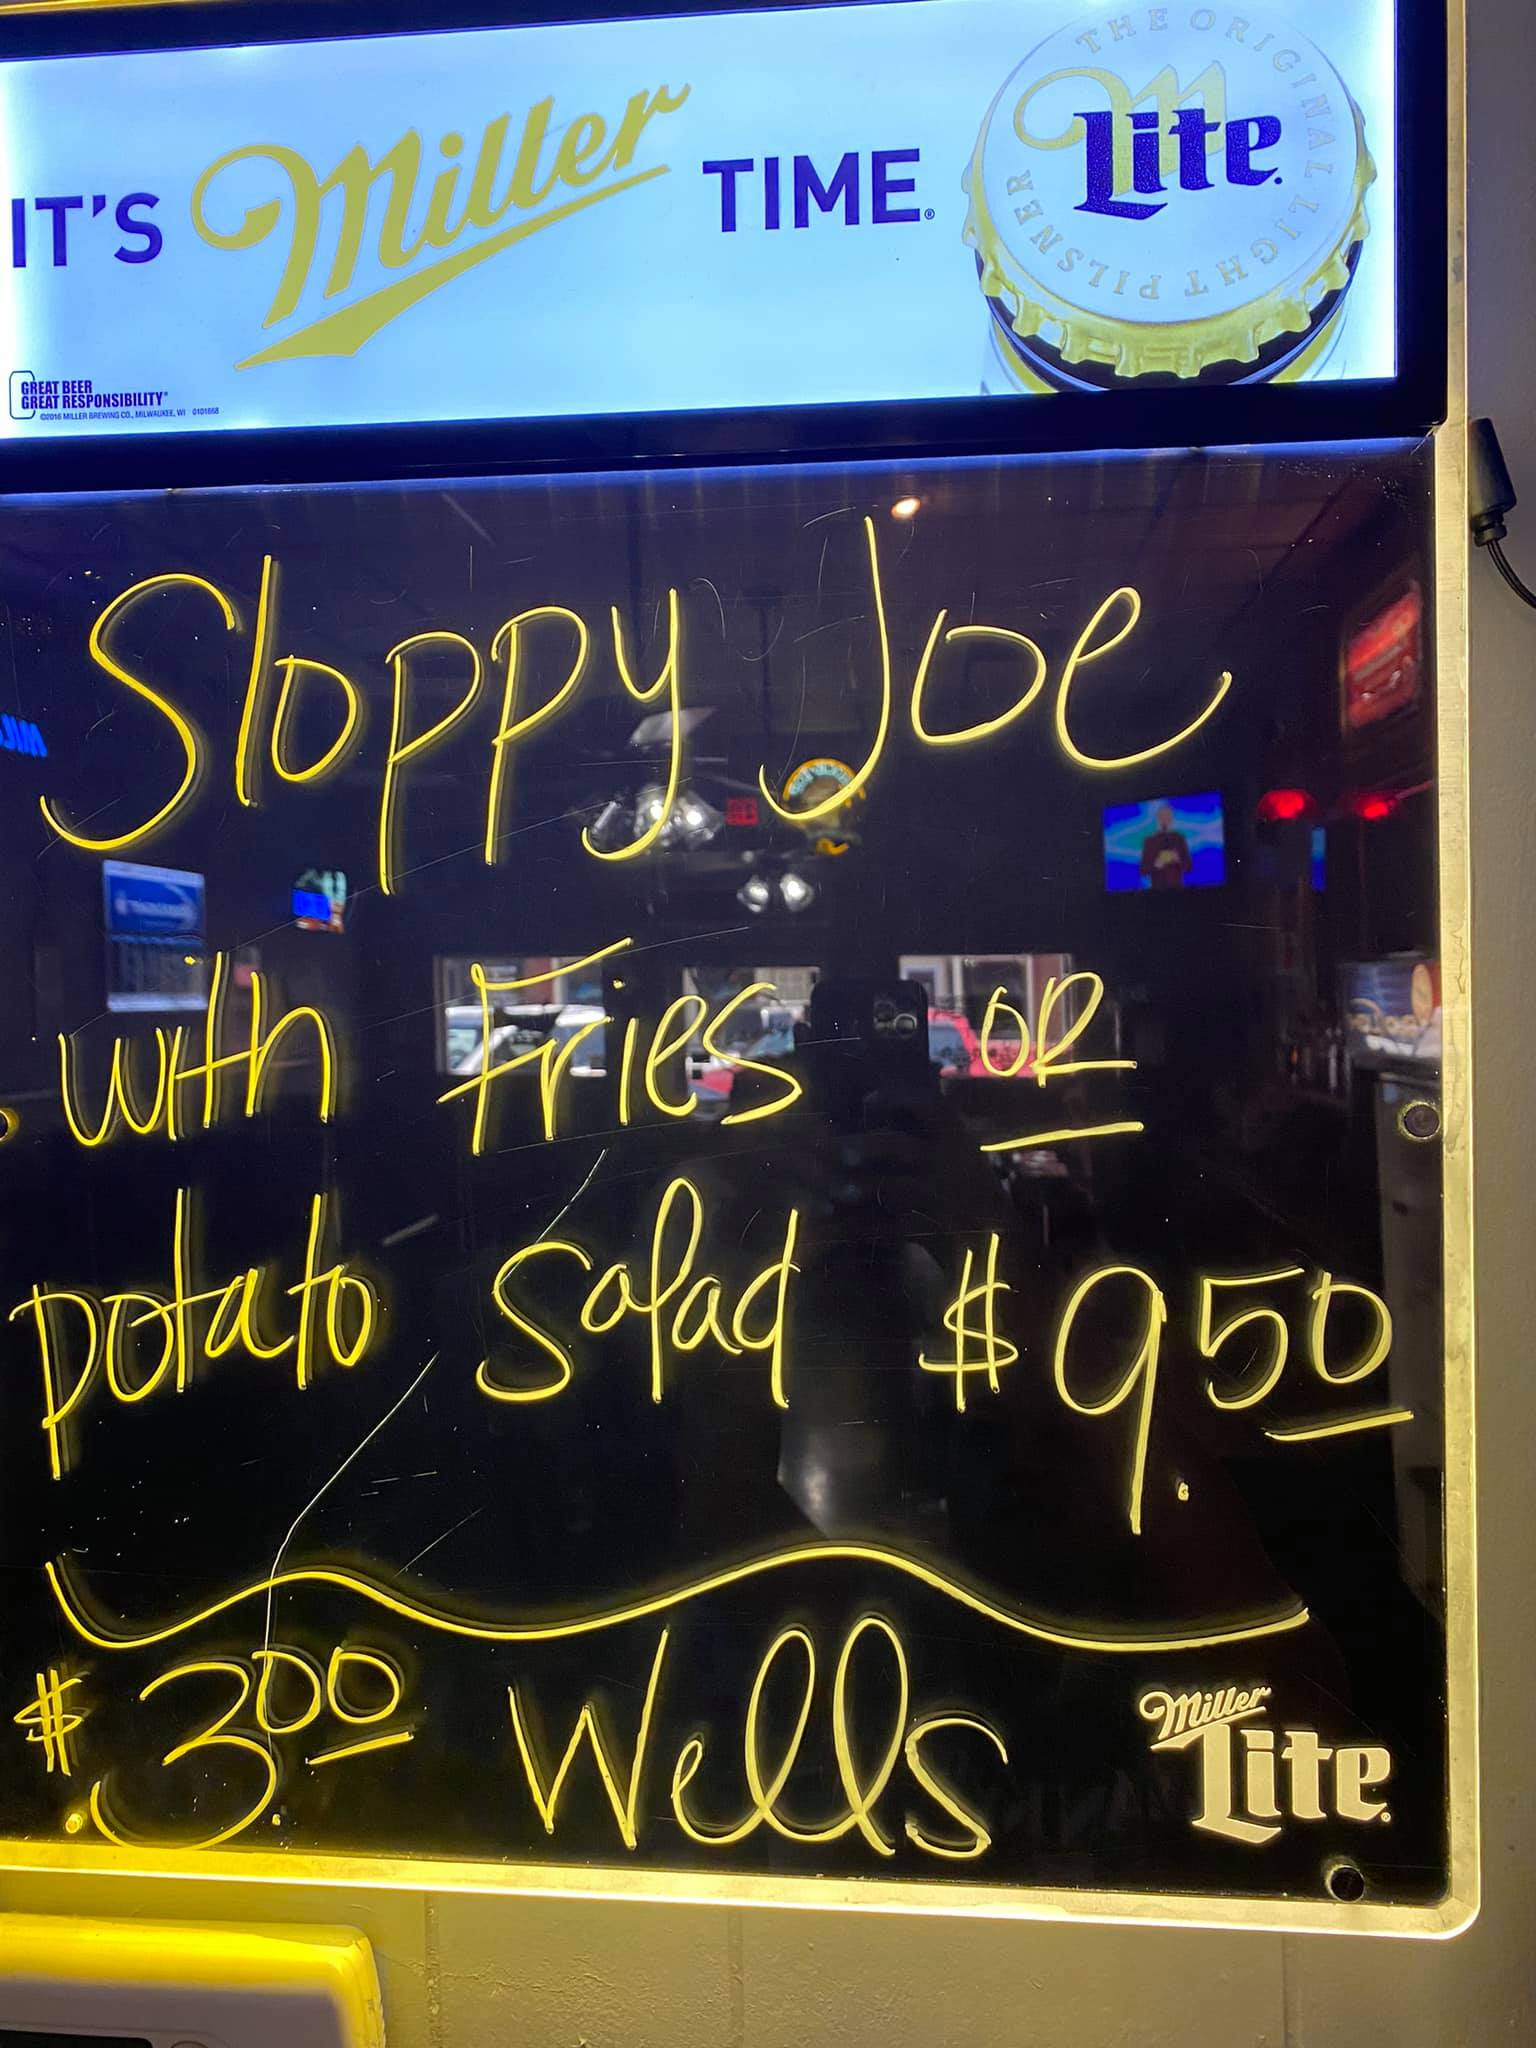 IT'S Miller TIME.®
THE ORIGINAL LIGHT PILSNER
Lite
GREAT BEER
GREAT RESPONSIBILITY®
©2016 MILLER BREWING CO., MILWAUKEE, WI 0101668
Sloppy Joe
with Fries OR
potato Salad $9.50
$3.00 Wells
Miller
Lite